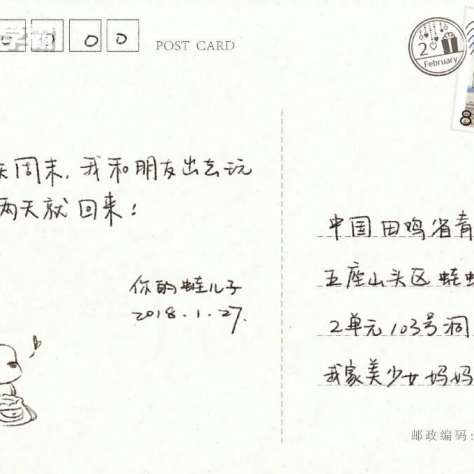 学霸
0 0 0
POST CARD
2
February
8
天周末,我和朋友出去玩
两天就回来!
你的蛙儿子
2018.1.27.
中国田鸡省青
五座山头区 蛙
2单元103号洞
我家美少女妈妈
邮政编码: